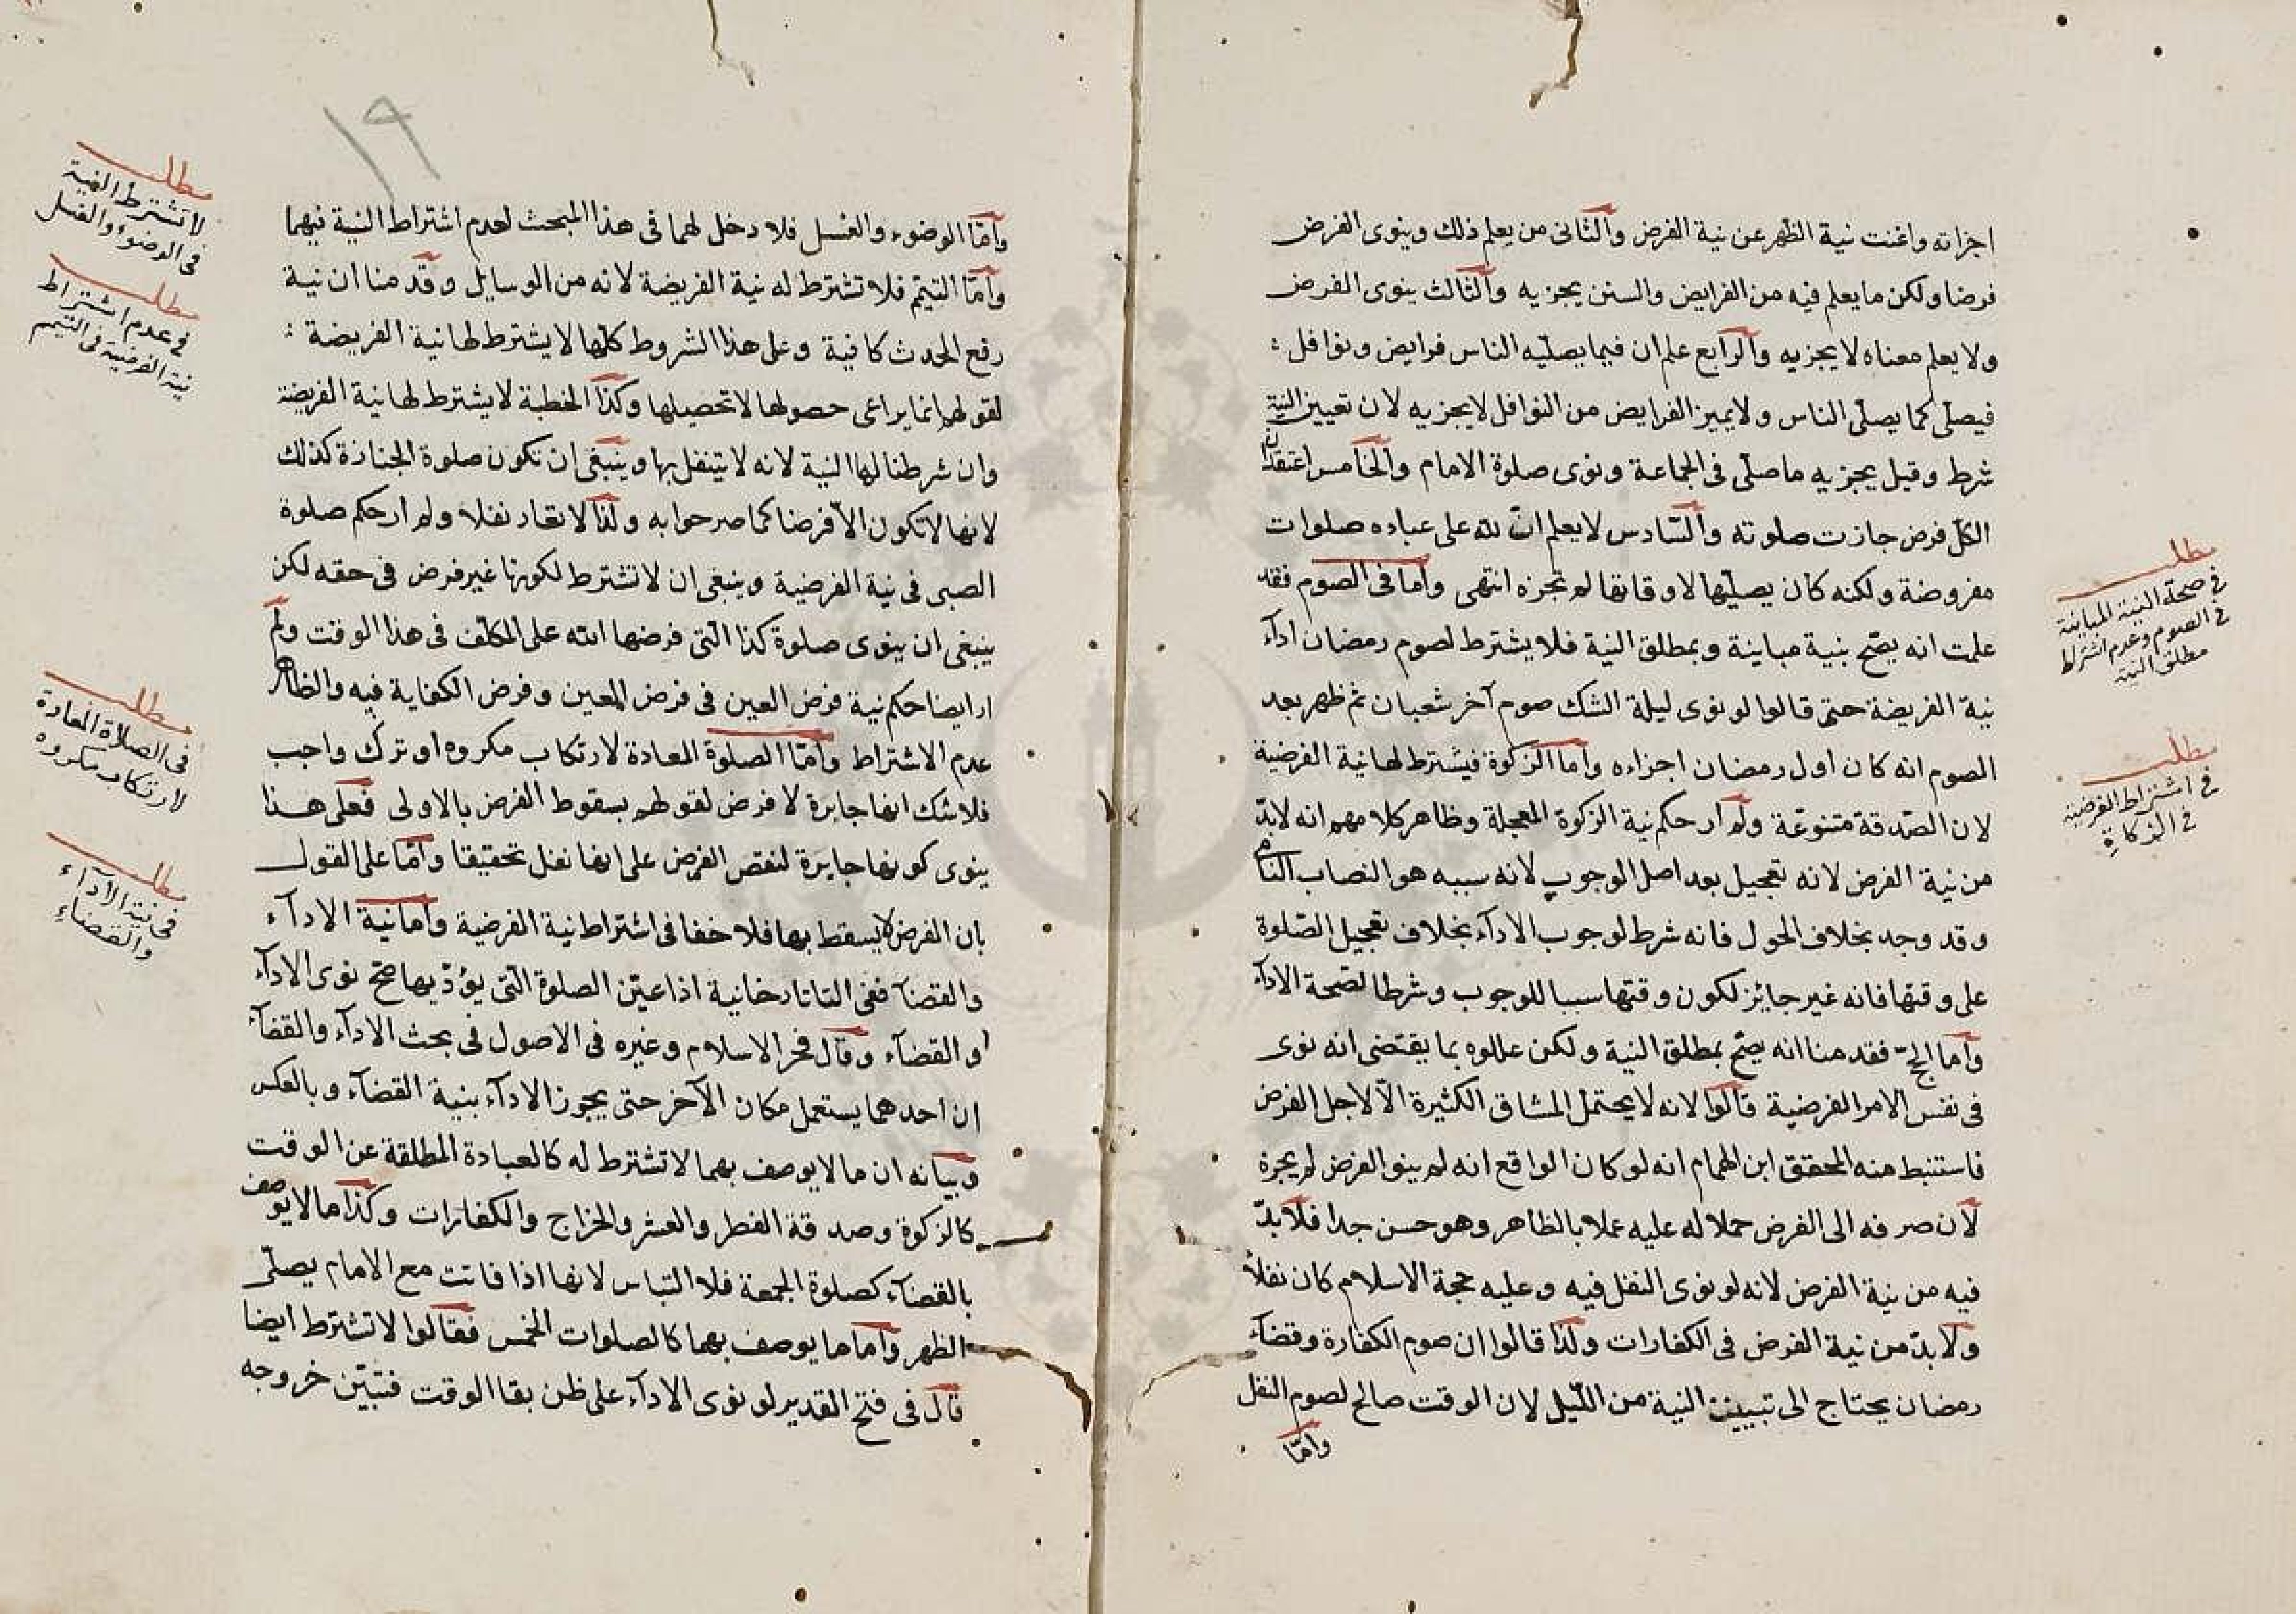 اجزاته واغنت نية الظهر عن نية الفرض والثانى من يعلم ذلك وينوى الفرض
فرضا ولكن ما يعلم فيه من الفرايض والسنن يجزيه والثالث ينوى الفرض
ولا يعلم معناه لا يجزيه والرابع علم ان فيما يصليه الناس فرايض ونوافل
فيصلى كما يصلى الناس ولا يميز الفرايض من النوافل لا يجزيه لان تعيين النية
شرط وقيل يجزيه ما صلى فى الجماعة ونوى صلوة الامام والخامس اعتقد ان
الكل فرض جازت صلوته والسادس لا يعلم ان لله على عباده صلوات
مفروضة ولكنه كان يصليها لاوقاتها لم تجزه انتهى واما فى الصوم فقد
علمت انه يصح بنية مباينة وبمطلق النية فلا يشترط لصوم رمضان اداء
نية الفريضة حتى قالوا لو نوى ليلة الشك صوم آخر شعبان ثم ظهر بعد
الصوم انه كان اول رمضان اجزاه واما الزكوة فيشترط لها نية الفرضية
لان الصدقة متنوعة ولم ار حكم نية الزكوة المعجلة وظاهر كلامهم انه لابد
من نية الفرض لانه تعجيل بعد اصل الوجوب لانه سببه هو النصاب النام
وقد وجد بخلاف الحول فانه شرط لوجوب الاداء بخلاف تعجيل الصلوة
على وقتها فانه غير جايز لكون وقتها سببا للوجوب وشرطا لصحة الاداء
واما الحج فقد منا انه يصح بمطلق النية ولكن عللوه بما يقتضى انه نوى
فى نفس الامر الفرضية قالوا لانه لا يحتمل المشاق الكثيرة الا لاجل الفرض
فاستنبط منه المحقق ابن الهمام انه لو كان الواقع انه لم ينو الفرض لم يجزه
لان صرفه الى الفرض حملا له عليه عملا بالظاهر وهو حسن جدا فلا بد
فيه من نية الفرض لانه لو نوى النفل فيه وعليه حجة الاسلام كان نفلا
ولا بد من نية الفرض فى الكفارات ولذا قالوا ان صوم الكفارة وقضاء
رمضان يحتاج الى تبييت النية من الليل لان الوقت صالح لصوم النفل
واما
مطلب
فى صحة النية المباينة
فى الصوم وعدم اشتراط
مطلق النية
مطلب
فى اشتراط الفرضية
فى الزكاة
١٩
واما الوضوء والغسل فلا دخل لهما فى هذا المبحث لعدم اشتراط النية فيهما
واما التيمم فلا تشترط له نية الفريضة لانه من الوسايل وقد منا ان نية
رفع الحدث كافية وعلى هذا الشروط كلها لا يشترط لها نية الفريضة
لقولهم انما يراعى حصولها لا تحصيلها وكذا الخطبة لا يشترط لها نية الفريضة
وان شرطنا لها النية لانه لا يتنفل بها وينبغى ان تكون صلوة الجنازة كذلك
لانها لا تكون الا فرضا كما صرحوا به ولذا لا تعاد نفلا ولم ار حكم صلوة
الصبى فى نية الفرضية وينبغى ان لا تشترط لكونها غير فرض فى حقه لكن
ينبغى ان ينوى صلوة كذا التى فرضها الله على المكلف فى هذا الوقت ولم
ار ايضا حكم نية فرض العين فى فرض المعين وفرض الكفاية فيه والظاهر
عدم الاشتراط واما الصلوة المعادة لارتكاب مكروه او ترك واجب
فلا شك انها جابرة لا فرض لقولهم بسقوط الفرض بالاولى فعلى هذا
ينوى كونها جابرة لنقص الفرض على انها نفل تحقيقا واما على القول
بان الفرض لا يسقط بها فلا خفا فى اشتراط نية الفرضية واما نية الاداء
والقضا ففى التاتارخانية اذا عين الصلوة التى يؤديها صح نوى الاداء
او القضاء وقال فخر الاسلام وغيره فى الاصول فى بحث الاداء والقضاء
ان احدهما يستعمل مكان الآخر حتى يجوز الاداء بنية القضاء وبالعكس
وبيانه ان ما لا يوصف بهما لا تشترط له كالعبادة المطلقة عن الوقت
كالزكوة وصدقة الفطر والعشر والخراج والكفارات وكذا ما لا يوصف
بالقضاء كصلوة الجمعة فلا التباس لانها اذا فاتت مع الامام يصلى
الظهر واما ما يوصف بهما كالصلوات الخمس فقالوا لا تشترط ايضا
قال فى فتح القدير لو نوى الاداء على ظن بقا الوقت فتبين خروجه
مطلب
لا تشترط النية
فى الوضوء والغسل
مطلب
فى عدم اشتراط
نية الفرضية فى التيمم
مطلب
فى الصلاة المعادة
لارتكاب مكروه
مطلب
فى نية الاداء
والقضاء